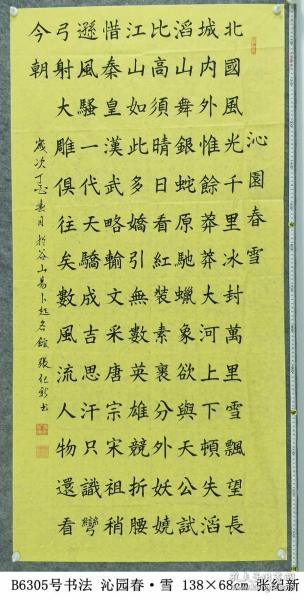 沁園春雪
北國風光千里冰封萬里雪飄望長
城內外惟餘莽莽大河上下頓失滔
滔山舞銀蛇原馳蠟象欲與天公試
比高須晴日看紅裝素裹分外妖嬈
江山如此多嬌引無數英雄競折腰
惜秦皇漢武略輸文采唐宗宋祖稍
遜風騷一代天驕成吉思汗只識彎
弓射大雕俱往矣數風流人物還看
今朝
歲次丁亥春月於谷山易卜起名館張紀新書
B6305号书法 沁园春·雪 138×68cm 张纪新